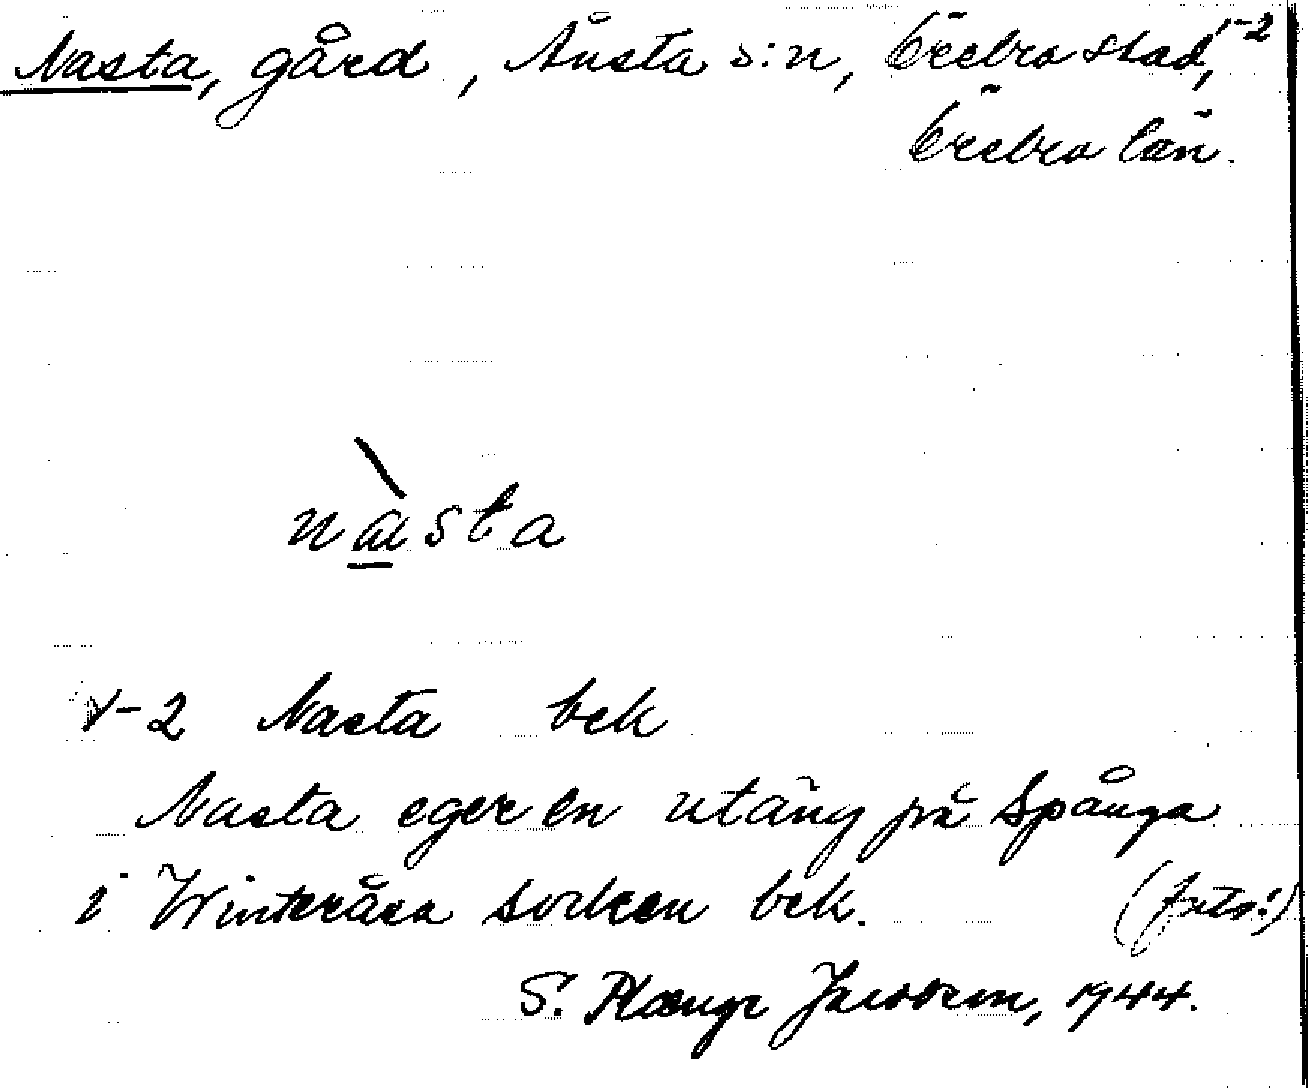 Nasta, gård, Ånsta s:n, Örebro stad, 1-2
Örebro län.
nàsta
1-2 Nasta bek
Nasta eger en utäng på Spånga
i Winteråsa socken bek. (fots!)
S. Jacobson, 1944.